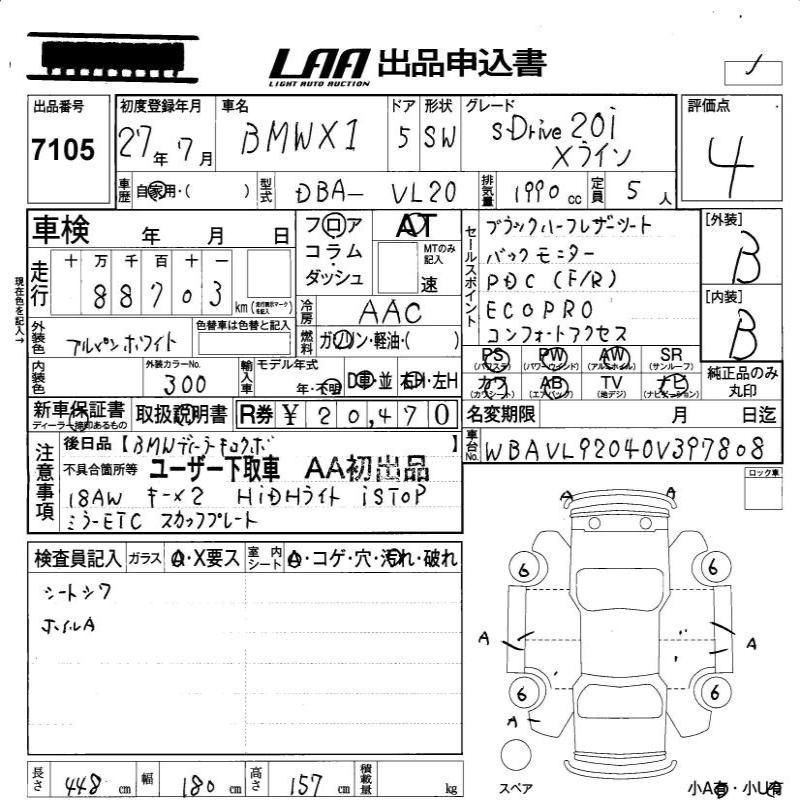 LAA 出品申込書
LIGHT AUTO AUCTION
出品番号
7105
初度登録年月
27年7月
車名
BMWX1
ドア
5
形状
SW
グレード
s-Drive 20i
Xライン
評価点
4
車歴
自家用・( )
型式
DBA- VL20
排気量
1990cc
定員
5人
車検 年 月 日
現在色を記入→
走行
十 万 千 百 十 一
8 8 7 0 3
km (走行表示マークを記入)
フロア
コラム・
ダッシュ
AT
MTのみ記入
速
冷房
AAC
燃料
ガソリン・軽油・( )
セールスポイント
ブラックハーフレザーシート
バックモニター
PDC (F/R)
ECOPRO
コンフォートアクセス
[外装]
B
[内装]
B
外装色
アルペンホワイト
色替車は色替と記入
内装色
外装カラーNo.
300
輸入車
モデル年式
年・不明
D車・並
右H・左H
PS
(パワステ)
PW
(パワーウインド)
AW
(アルミホイル)
SR
(サンルーフ)
カワ
(カワシート)
AB
(エアバック)
TV
(地デジ)
ナビ
(ナビゲーション)
純正品のみ
丸印
新車保証書
ディーラー捺印あるもの
取扱説明書
R券 ¥ 20,470
名変期限 月 日迄
車台No.
WBAVL92040V397808
注意事項
後日品【BMWディーラキロクボ 】
不具合箇所等 ユーザー下取車 AA初出品
18AW キー×2 HiDHライト iSTOP
ミラーETC スカッフプレート
ロック車
検査員記入
ガラス
A・X要ス
室内
シート
A・コゲ・穴・汚れ・破れ
シートシワ
ホイルA
A A
6 6
A A
6 6
A
スペア
小A有・小U有
長さ
448cm
幅
180cm
高さ
157cm
積載量
kg